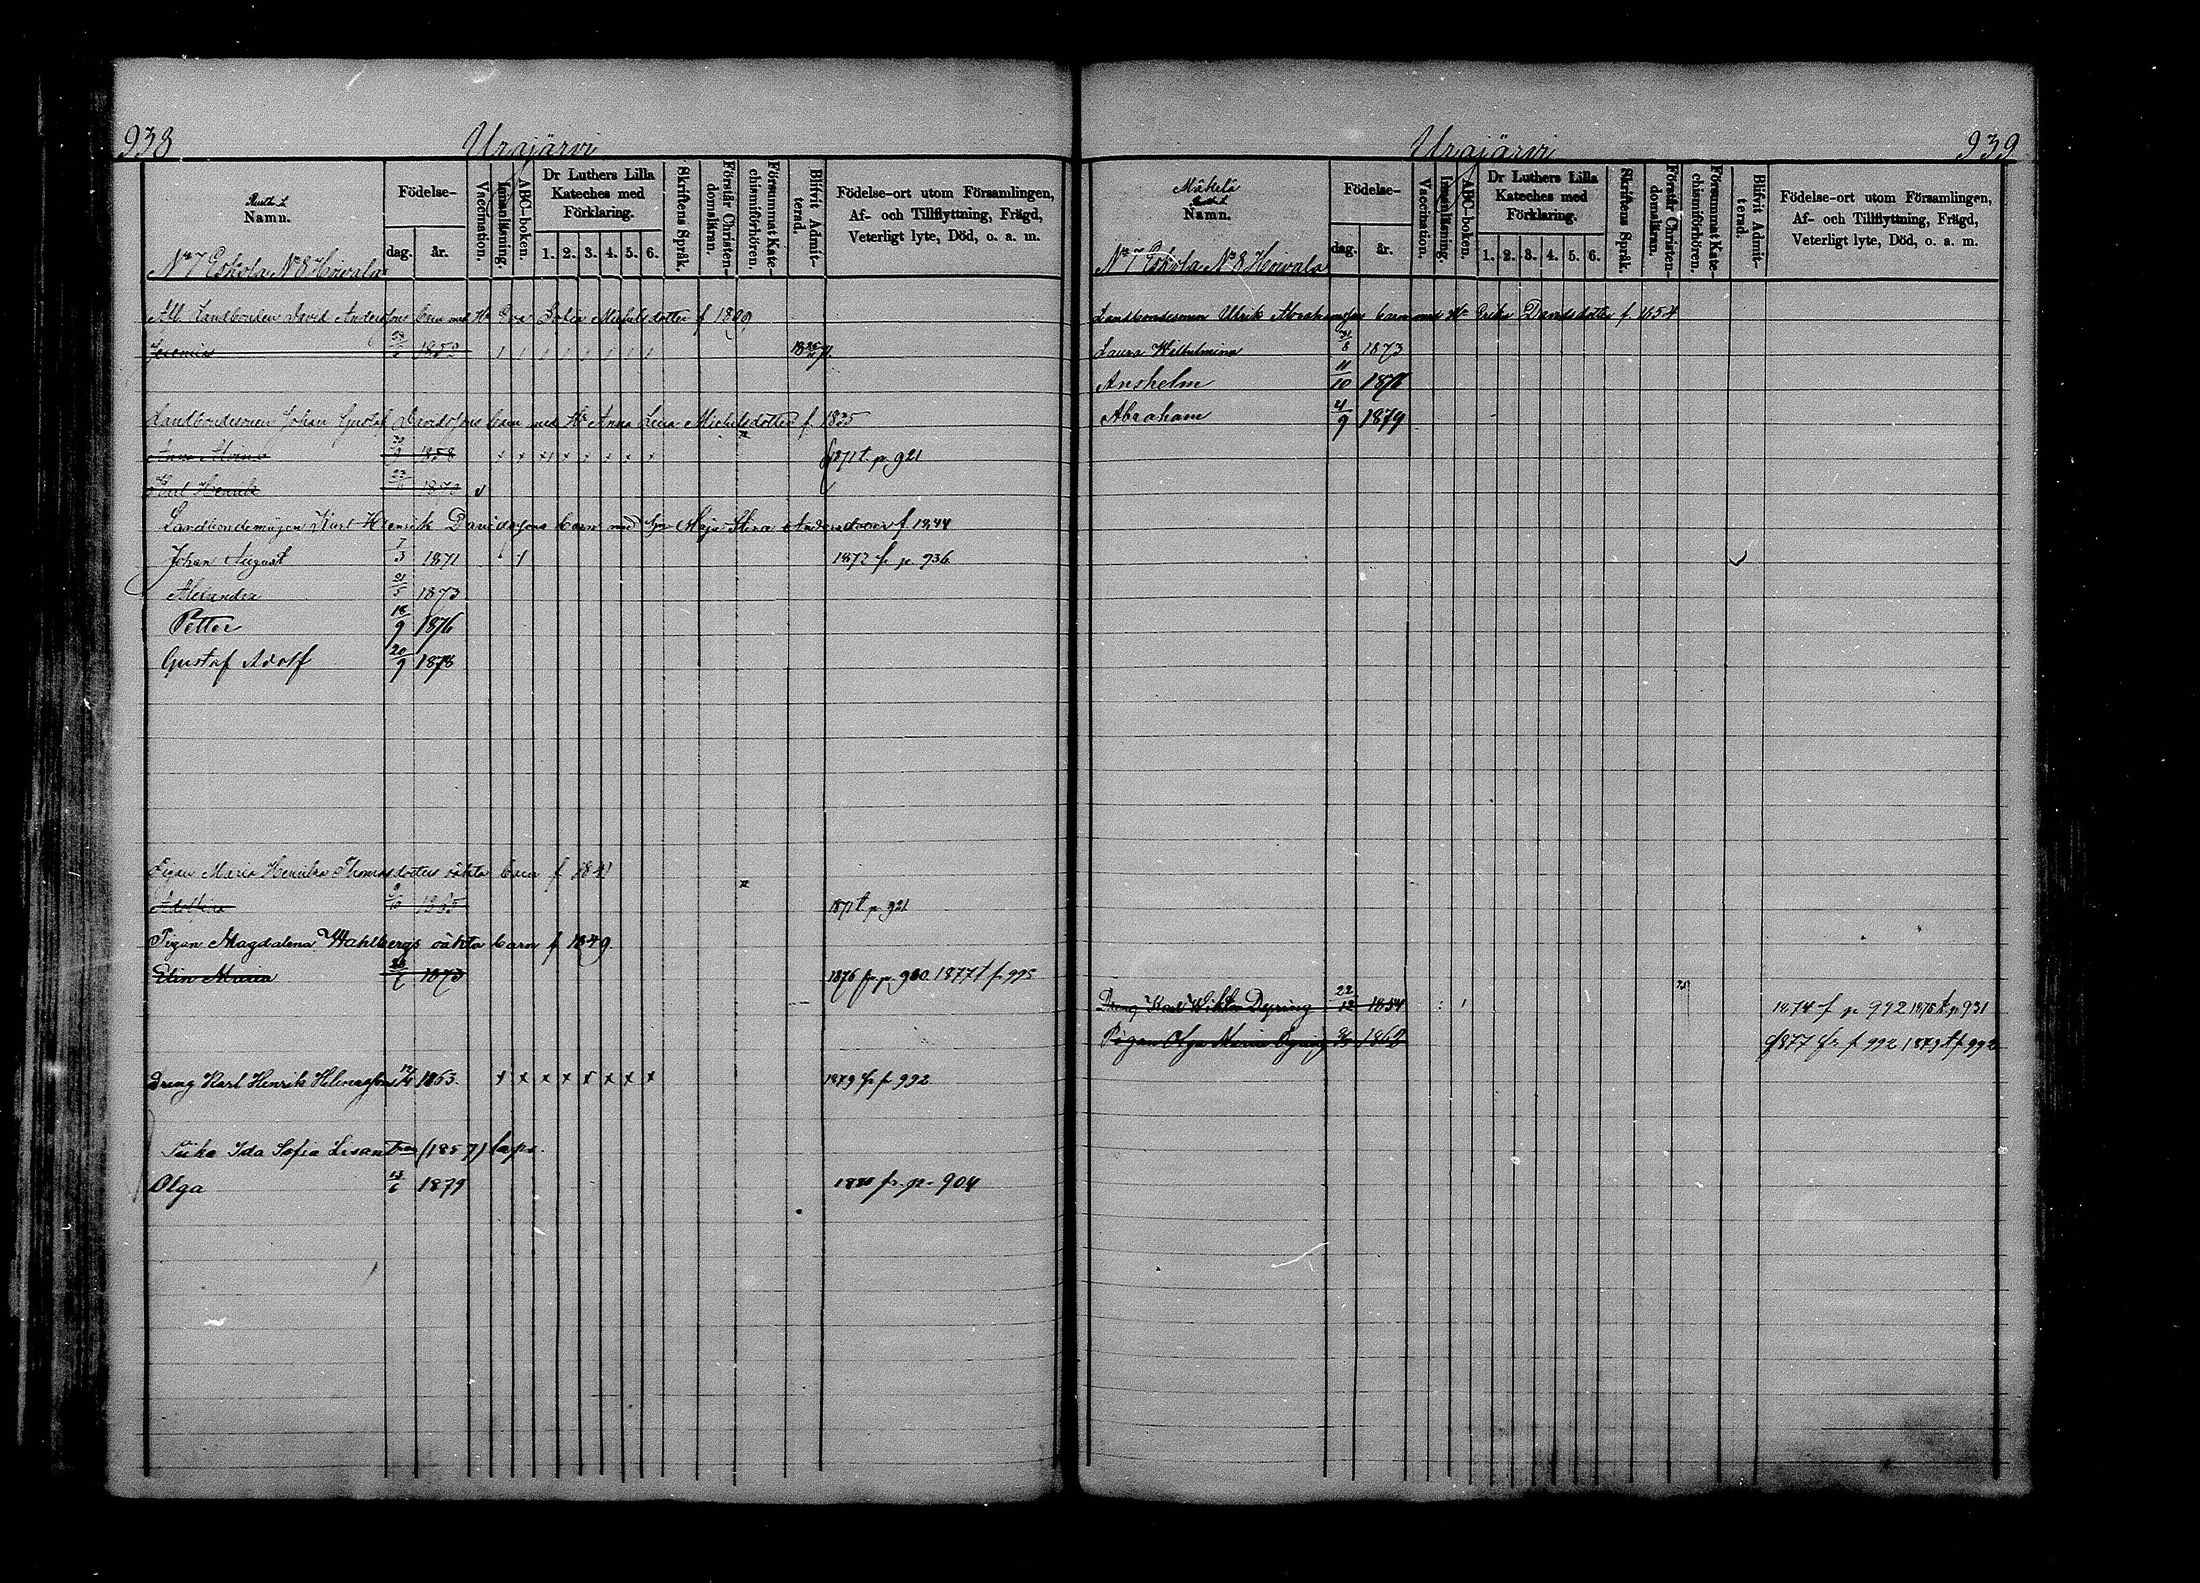 938
Urajärvi
Namn.
Födelse-
dag.
år.
Vaccination.
Innanläsning.
ABC-boken.
Dr Luthers Lilla Kateches med Förklaring.
1. 2. 3. 4. 5. 6.
Skriftens Språk.
Förstår Christendomsläran.
Försummat Katechismiförhören.
Blifvit Admitterad.
Födelse-ort utom Församlingen, Af- och Tillflyttning, Frägd, Veterligt lyte, Död, o. a. m.
No 7 Eskola No 8 Heivala
Landbonden David Andersons barn med Hu Eva Sofia Michelsdotter f 1809
Jeremias 1852
Landbondesonen Johan Gustaf Davidsons barn med Hu Anna Lena Michelsdotter f. 1835
Anna 1858 1871 t. p. 921
Karl Henrik
Landbondemågen Karl Henrik Davidsons barn med Maja Stina Andersdotter f 1844
Johan August 7/3 1871 1872 f p. 936
Alexandra 21/5 1873
Petter 18/9 1876
Gustaf Adolf 20/9 1878
Pigan Maria Henrika Thomasdotters oäkta barn f 1841
Adolfina 1865 1871 t p 921
Pigan Magdalena Wahlbergs oäkta barn f 1849
Elin Maria 1873 1876 fr. p. 980 1877 t p 995
Dreng Karl Henrik 1863 1879 fr p 992
Piika Ida Sofia (1857) laps.
Olga 13/6 1879 1880 fr. p. 904
939
Urajärvi
Mäkelä
Namn.
Födelse-
dag.
år.
Vaccination.
Innanläsning.
ABC-boken.
Dr Luthers Lilla Kateches med Förklaring.
1. 2. 3. 4. 5. 6.
Skriftens Språk.
Förstår Christendomsläran.
Försummat Katechismiförhören.
Blifvit Admitterad.
Födelse-ort utom Församlingen, Af- och Tillflyttning, Frägd, Veterligt lyte, Död, o. a. m.
No 7 Eskola No 8 Heivala
Landbondesonen Ulrik Abrahamsons barn med Hu Erika Davidsdotter f. 1854
Laura Wilhelmina 31/8 1873
Anshelm 11/10 1876
Abraham 4/9 1879
Dreng Karl Wiktor 22/12 1854 1874 f p 992 1875 t. p 931
Pigan Olga Maria 1860 1877 fr p 992 1879 t p 992